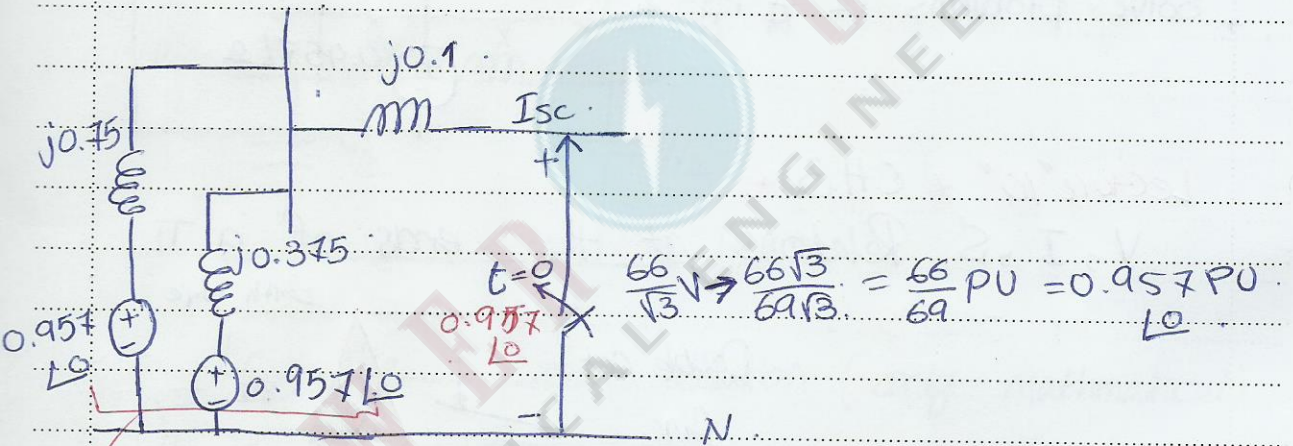 j0.1
Isc
j0.75
+
j0.375
t=0
66/√3 V → 66√3/69√3 = 66/69 PU = 0.957 PU
∠0
0.957
∠0
0.957
∠0
+
-
+
-
0.957∠0
-
N